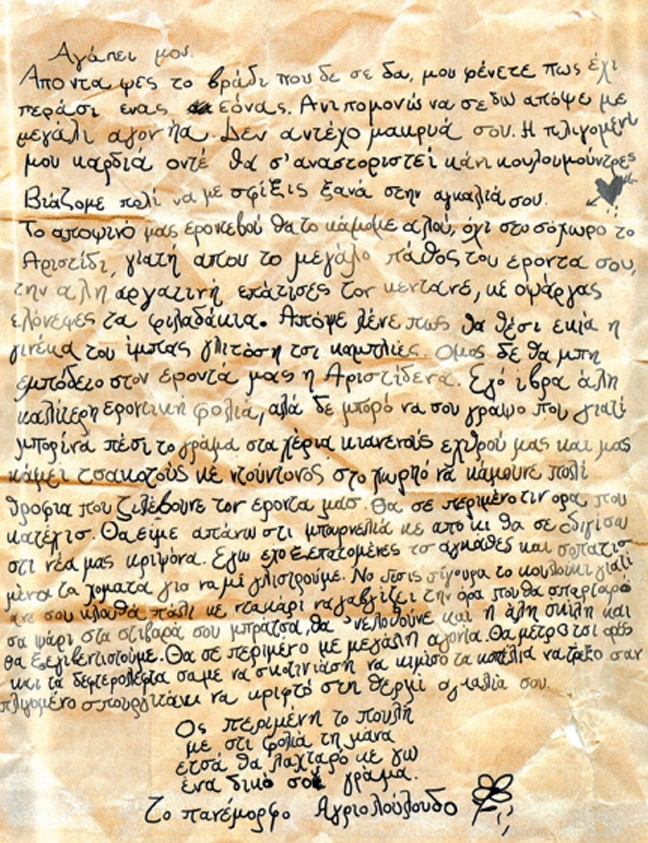 Αγάπει μου.
Απο ντα ψες το βράδι που δε σε δα, μου φένετε πως έχι
περάσι ενας εόνας. Ανιπομονώ να σε δω απόψε με
μεγάλι αγονήα. Δεν αντέχο μακρυά σου. Η πλιγομένι
μου καρδιά οντέ θα σ'αναστοριστεί κάνι κουλουμούντρες
Βιάζομε πολί να με σφίξις ξανά στην αγκαλιά σου.
Το αποψινό μας εροντεβού θα το κάμομε αλού, όχι στο σόχωρο το
Αριστίδι, γιατή απου το μεγάλο πάθος του εροντα σου,
την αλη αργατινή επάτισες τον κεντανέ, κε οψάργας
ελόνεψες τα φιλαδάκια. Απόψε λένε πως θα θέσι εκιά η
γινέκα του ίμπας γλιτόση τσι καμπλιές. Ομος δε θα μπη
εμπόδειο στον έροντά μας η Αριστίδενα. Εγό ίβρα άλη
καλίτερη εροντική φολιά, αλά δε μπορό να σου γραψο που γιατί
μπορίνα πέσι το γράμα στα χέρια κιανενούς εχθρού μας και μας
κάμει τσακοτούς κε ντούντονος στο χωρηό να κάμουνε πολί
θροφια που ζιλέβουνε τον εροντα μας. Θα σε περιμένο τιν ορα που
κατέχισ. Θα είμε απάνω στι μπουρνελιά κε απο κι θα σε οδιγίσω
στι νέα μας κριψόνα. Εγω εχο ξεπατομένες τσ αγκάθες και σοπατισ
μένα τα χοματα για να μι γλιστρούμε. Νο δεσις σίγουρα το κουλούκι γιατί
ανε σου κλουθά πάλι κε ντακάρι να γαβγίζει την όρα που θα σπαρταρό
σα ψάρι στα στιβαρά σου μπράτσα, θα νελοθούνε και η άλη σκίλη και
θα ξεγιβεντιστούμε. Θα σε περιμένο με μεγάλη αγονία. Θα μέτρο τσι ορες
και τα δεφτερολέφτα σαμε να σκοτινιάση να κιμίσο τα κοπέλια να τρεξο σαν
πλιγομένο σπουργιτάκι να κριφτό στη θερμί αγκαλιά σου.
Ος περιμένη το πουλή
με στι φολιά τη μάνα
ετσά θα λαχταρό κε γω
ένα δικό σου γράμα.
Το πανέμορφο Αγριολούλουδο